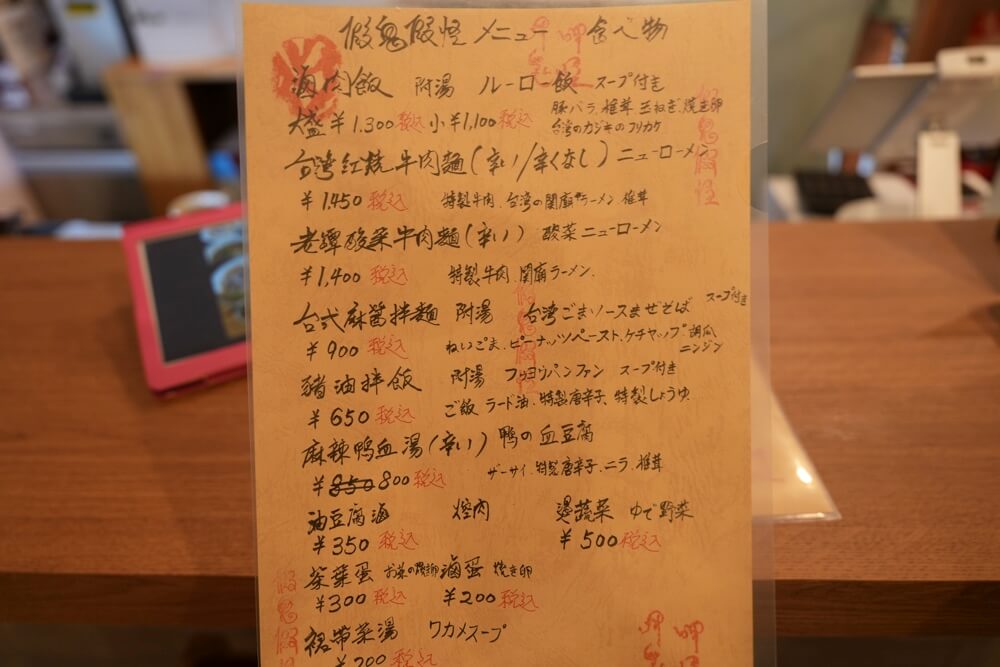 假鬼假怪 メニュー 食べ物
滷肉飯 附湯 ルーロー飯 スープ付き
大盛¥1.300税込 小¥1,100税込 豚バラ、椎茸 玉ねぎ、焼き卵
台湾のカジキのフリカケ
台湾紅焼牛肉麵(辛い/辛くなし) ニューローメン
¥1.450 税込 特製牛肉、台湾の関廟ラーメン 椎茸
老罈酸菜牛肉麵(辛い) 酸菜ニューローメン
¥1,400 税込 特製牛肉、関廟ラーメン、
台式麻醬拌麵 附湯 台湾ごまソースまぜそば スープ付き
¥900 税込 ねいごま、ピーナッツペースト、ケチャップ 胡瓜
ニンジン
豬油拌飯 附湯 フゥヨウパンファン スープ付き
¥650 税込 ご飯 ラード油、特製唐辛子、特製しょうゆ
麻辣鴨血湯(辛い) 鴨の血豆腐
¥850 800 税込 ザーサイ、特製唐辛子、ニラ、椎茸
油豆腐滷 焢肉 燙蔬菜 ゆで野菜
¥350 税込 ¥500税込
茶葉蛋 お茶の 滷蛋 焼き卵
¥300 税込 ¥200税込
裙帶菜湯 ワカメスープ
¥200 税込